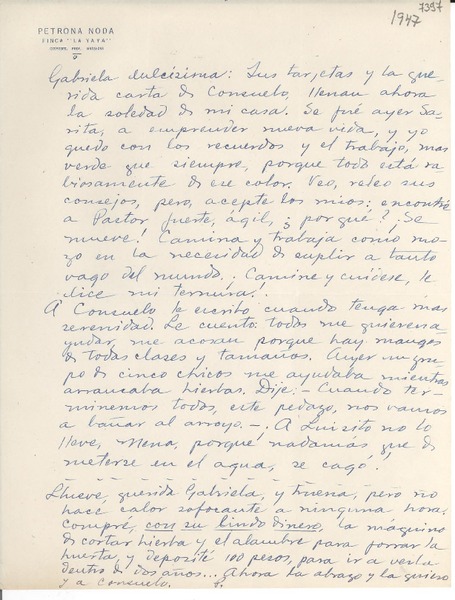 7397
1947
PETRONA NODA
FINCA "LA YAYA"
Gabriela dulcísima: Sus tarjetas y la que-
rida carta de Consuelo, llenan ahora
la soledad de mi casa. Se fué ayer Sa-
rita, a emprender nueva vida, y yo
quedo con los recuerdos y el trabajo, mas
verde que siempre, porque todo está ra-
biosamente de ese color. Veo, releo sus
consejos, pero, acepte los mios: encontré
a Pastor fuerte, ágil, ¿por qué? ¡Se
mueve! Camina y trabaja como mo-
zo en la necesidad de suplir a tanto
vago del mundo. ¡Camine y cuídese, le
dice mi ternura!
A Consuelo le escribo cuando tenga mas
serenidad. Le cuento: todos me quieren a
yudar, me acosan porque hay mangos
de todas clases y tamaños. Ayer un gru-
po de cinco chicos me ayudaba mientras
arrancaba hierbas. Dije: - Cuando ter-
minemos todos, este pedazo, nos vamos
a bañar al arroyo. -. A Luisito no lo
lleve, Mena, porque nadamás que de
meterse en el agua, se cagó!
Llueve, querida Gabriela, y truena, pero no
hace calor sofocante a ninguna hora.
Compré, con su lindo dinero, la máquina
de cortar hierba y el alambre para forrar la
huerta, y deposité 100 pesos, para ir a verla
dentro de dos años... Ahora la abrazo y la quiero
y a Consuelo.